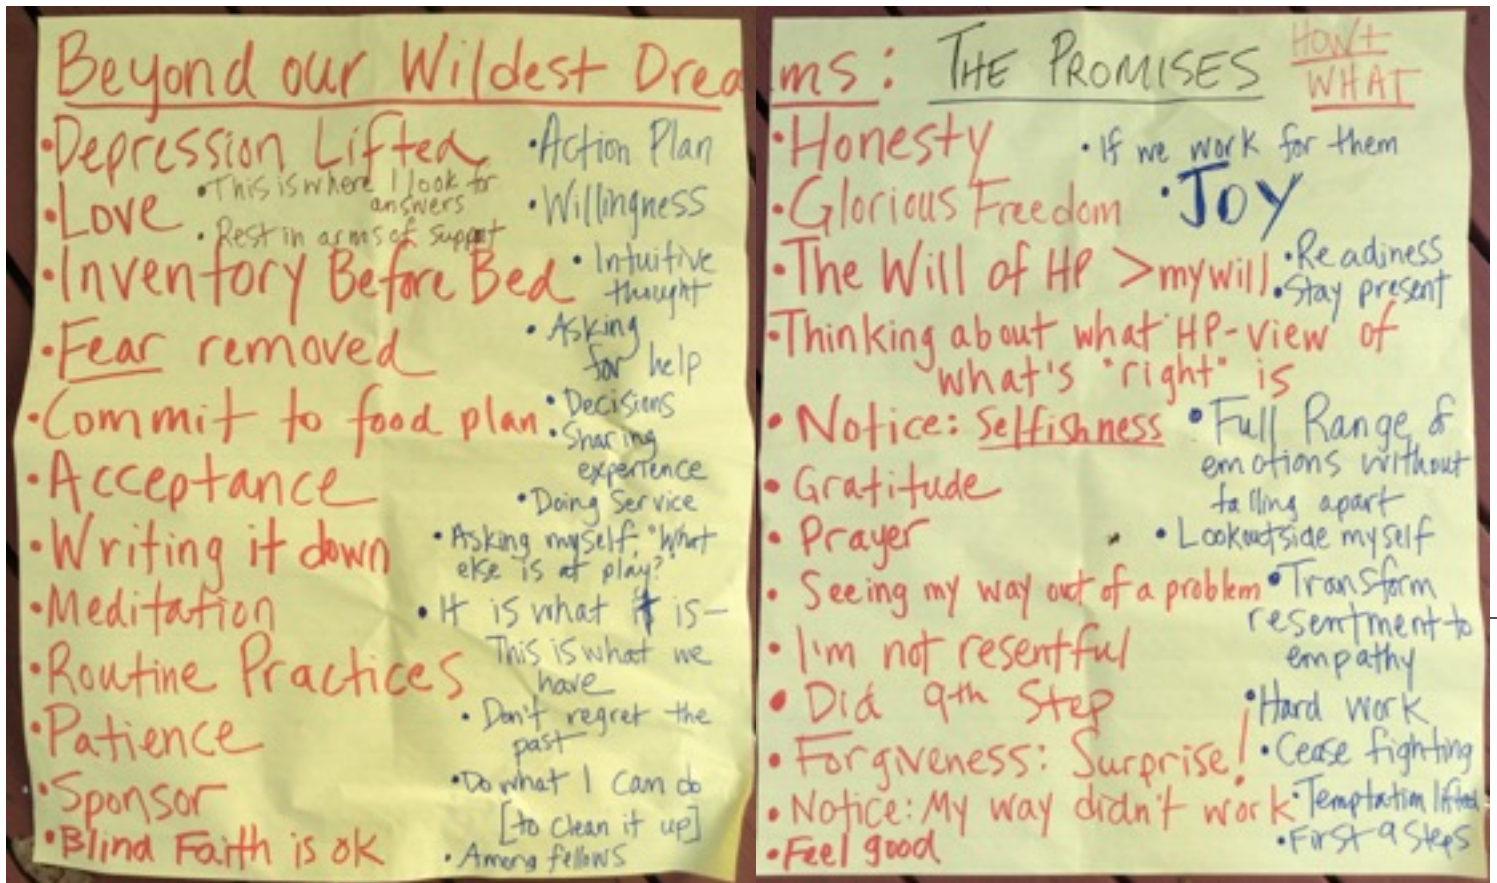 Beyond our Wildest Dreams: THE PROMISES
HOW +
WHAT
•Depression Lifted
•Love
•This is where I look for
answers
•Rest in arms of support
•Inventory Before Bed
•Fear removed
•Commit to food plan
•Acceptance
•Writing it down
•Meditation
•Routine Practices
•Patience
•Sponsor
•Blind Faith is ok
•Action Plan
•Willingness
•Intuitive
thought
•Asking
for help
•Decisions
•Sharing
experience
•Doing Service
•Asking myself, "What
else is at play?"
•It is what it is—
This is what we
have
•Don't regret the
past
•Do what I can do
[to clean it up]
•Among fellows
•Honesty
•Glorious Freedom
•The Will of HP > my will
•Thinking about what HP-view of
what's "right" is
•Notice: Selfishness
•Gratitude
•Prayer
•Seeing my way out of a problem
•I'm not resentful
•Did 9th Step
•Forgiveness: Surprise!
•Notice: My way didn't work
•Feel good
•If we work for them
•JOY
•Readiness
•Stay present
•Full Range of
emotions without
falling apart
•Look outside myself
•Transform
resentment to
empathy
•Hard work
•Cease fighting
•Temptation lifted
•First 9 Steps